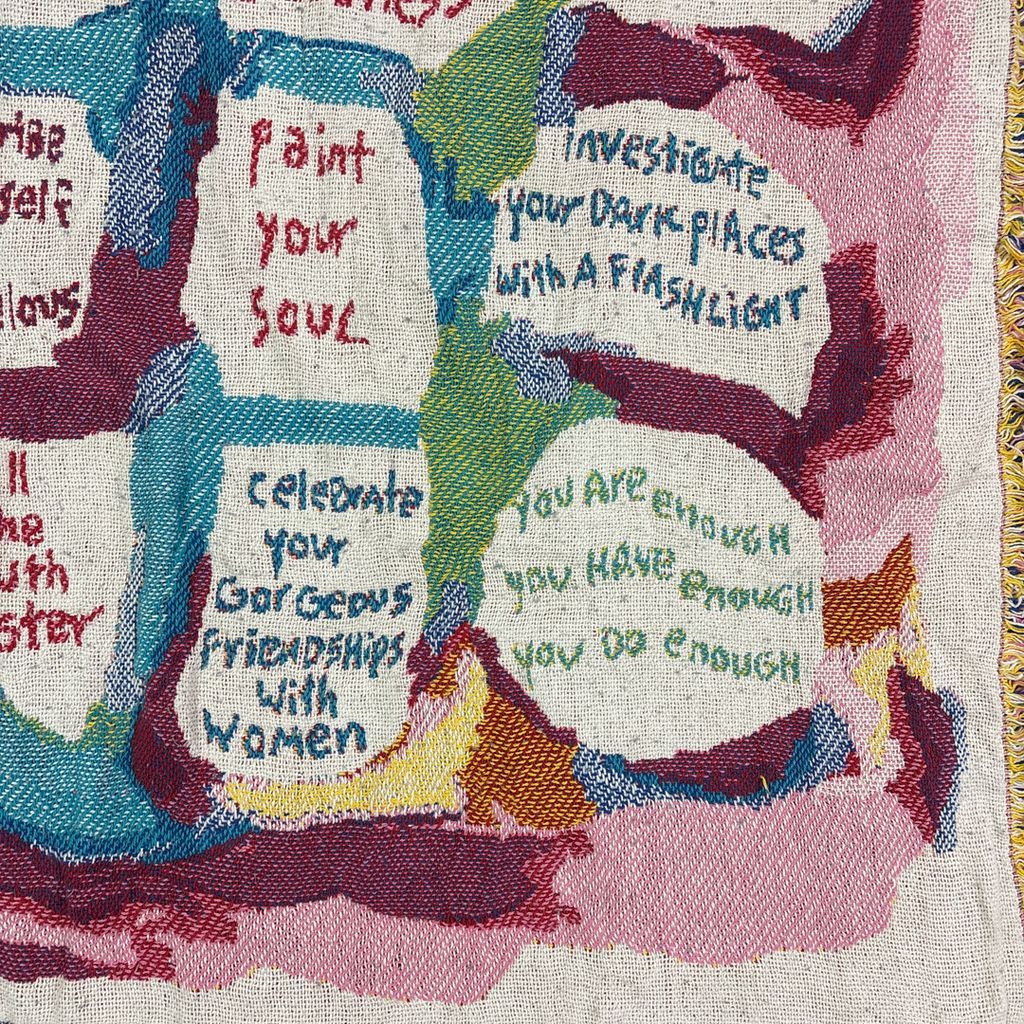 paint
your
Soul
investigate
your DARK plAces
with A FlASHLiGHT
celebrate
your
GorGeous
friendships
with
Women
you Are enough
you HAVE enough
you Do enough